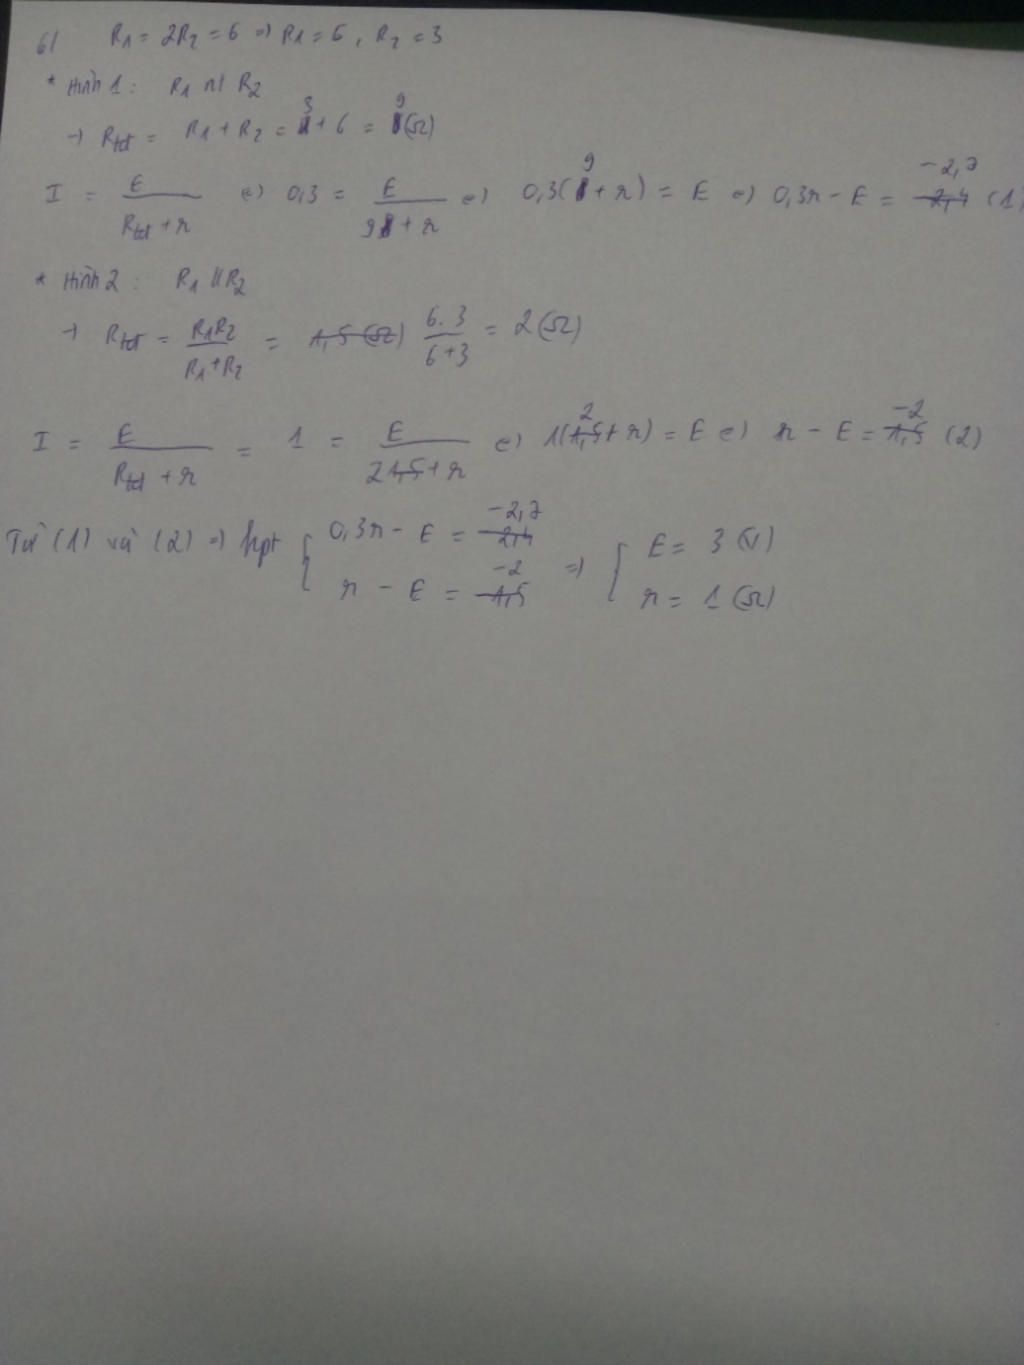 6/ R1 = 2R2 = 6 => R1 = 6, R2 = 3
* Hình 1: R1 nt R2
→ Rtđ = R1 + R2 = 3 + 6 = 9 (Ω)
I = E / (Rtđ + r) <=> 0,3 = E / (9 + r) <=> 0,3(9 + r) = E <=> 0,3r - E = -2,7 (1)
* Hình 2: R1 // R2
→ Rtđ = R1R2 / (R1 + R2) = 1,5 (Ω) 6.3 / (6+3) = 2 (Ω)
I = E / (Rtđ + r) = 1 = E / (2 1,5 + r) <=> 1(2 + r) = E <=> r - E = -2 (2)
Từ (1) và (2) => hpt { 0,3r - E = -2,7 => { E = 3 (V)
r - E = -2 r = 1 (Ω)